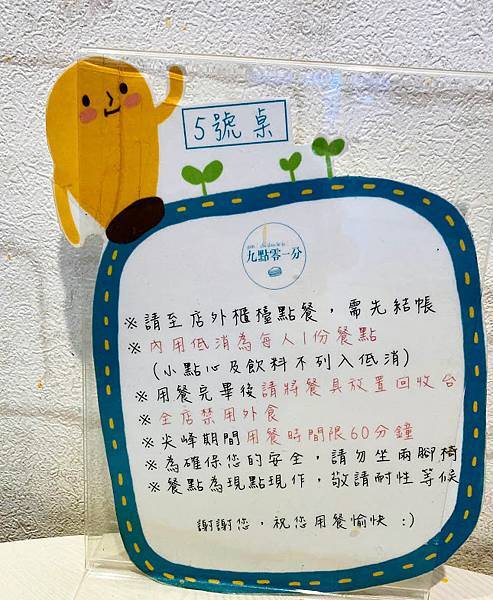 5號桌
九點零一分
※請至店外櫃檯點餐，需先結帳
※內用低消為每人1份餐點
(小點心及飲料不列入低消)
※用餐完畢後請將餐具放置回收台
※全店禁用外食
※尖峰期間用餐時間限60分鐘
※為確保您的安全，請勿坐兩腳椅
※餐點為現點現作，敬請耐性等候
謝謝您，祝您用餐愉快 :)